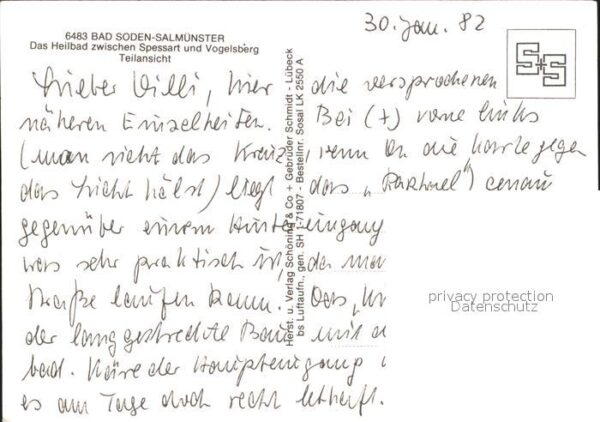 30. Jan. 82
6483 BAD SODEN-SALMÜNSTER
Das Heilbad zwischen Spessart und Vogelsberg
Teilansicht
S+S
Lieber Willi, hier die versprochenen
näheren Einzelheiten. Bei (+) vorne links
(man sieht das Kreuz, wenn Du die Karte gegen
das Licht hälst) liegt das „Raphael“, genau
gegenüber einem Hintereingang
was sehr praktisch ist, da man
Straße laufen kann. Das
der langgestreckte Bau mit d
bad. Wäre der Haupteingang
es am Tage doch recht lebhaft.
Herst. u. Verlag Schöning & Co + Gebrüder Schmidt - Lübeck
bs Luftaufn., gen. SH 1-71807 - Bestellnr. Sosal LK 2550 A
privacy protection
Datenschutz